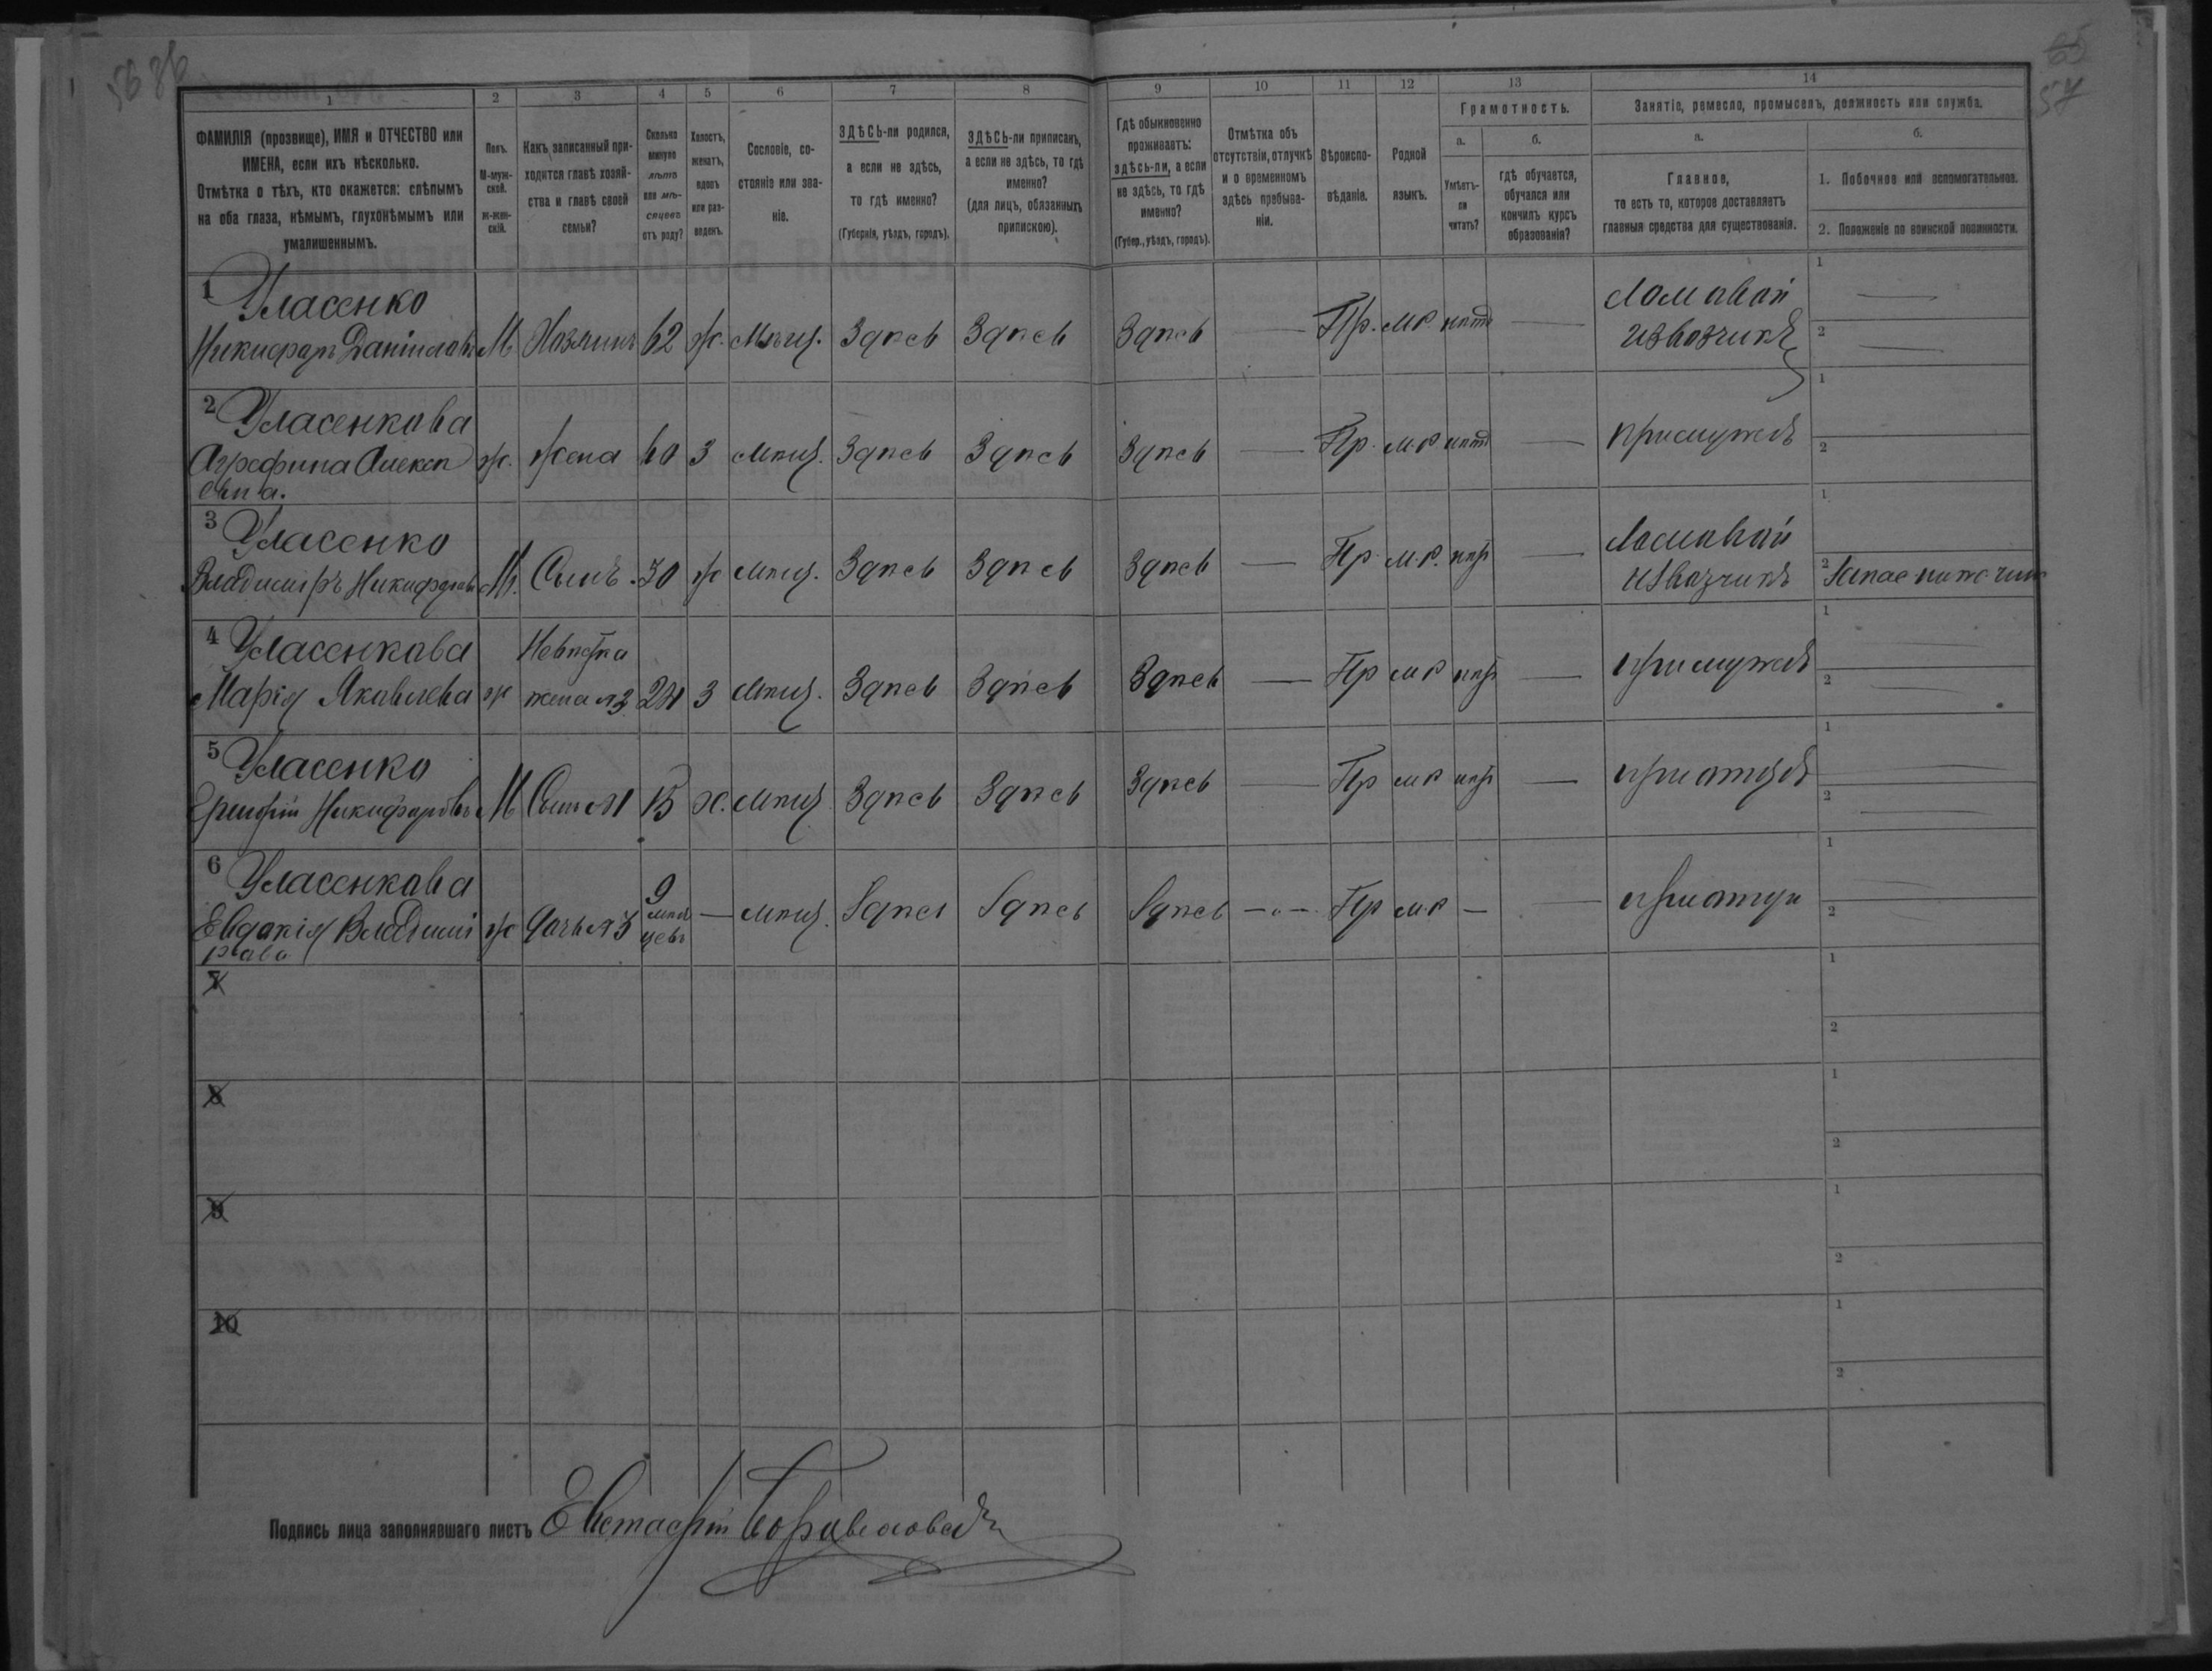 56 86
65
57
1 2 3 4 5 6 7 8 9 10 11 12 13 14
ФАМИЛІЯ (прозвище), ИМЯ и ОТЧЕСТВО или
ИМЕНА, если ихъ нѣсколько.
Отмѣтка о тѣхъ, кто окажется: слѣпымъ
на оба глаза, нѣмымъ, глухонѣмымъ или
умалишеннымъ.
Полъ.
М-муж-
ской.
ж-жен-
скій.
Какъ записанный при-
ходится главѣ хозяй-
ства и главѣ своей
семьи?
Сколько
минуло
лѣтъ
или мѣ-
сяцевъ
отъ роду?
Холостъ,
женатъ,
вдовъ
или раз-
веденъ.
Сословіе, со-
стояніе или зва-
ніе.
ЗДѢСЬ-ли родился,
а если не здѣсь,
то гдѣ именно?
(Губернія, уѣздъ, городъ).
ЗДѢСЬ-ли приписанъ,
а если не здѣсь, то гдѣ
именно?
(для лицъ, обязанныхъ
припискою).
Гдѣ обыкновенно
проживаетъ:
здѣсь-ли, а если
не здѣсь, то гдѣ
именно?
(Губер., уѣздъ, городъ).
Отмѣтка объ
отсутствіи, отлучкѣ
и о временномъ
здѣсь пребыва-
ніи.
Вѣроиспо-
вѣданіе.
Родной
языкъ.
Грамотность.
а.
Умѣетъ-
ли
читать?
б.
гдѣ обучается,
обучался или
кончилъ курсъ
образованія?
Занятіе, ремесло, промыселъ, должность или служба.
а.
Главное,
то есть то, которое доставляетъ
главныя средства для существованія.
б.
1. Побочное или вспомогательное.
2. Положеніе по воинской повинности.
1 Уласенко Ломавой 1 —
Никифаръ Даніиловъ М Хозяинъ 62 ж. Мѣщ. Здѣсь Здѣсь Здѣсь — Пр. м р нѣтъ — извозчикъ 2 —
2 Уласенкова 1
Агрефина Алексѣ ж. жена 60 З мѣщ. Здѣсь Здѣсь Здѣсь — Пр. м.р нѣтъ — примужѣ 2
евна.
3 Уласенко Ломавой 1
Владимиръ Никифоровъ М. Сынъ. 30 ж мѣщ. Здѣсь Здѣсь Здѣсь — Пр. м.р. нѣт — извозчикъ 2
4 Уласенкава Невѣстка 1 —
Марія Яковлева ж жена №3 24 З мѣщ. Здѣсь Здѣсь Здѣсь — Пр м р нѣт — примужѣ 2 —
5 Уласенко 1 —
Никифоровъ М Сынъ №1 15 х. мѣщ Здѣсь Здѣсь Здѣсь — Пр м р нѣт — приотцѣ 2 —
6 Уласенкава 9 1 —
Евдакія Владими ж дочь №3 мѣся — мѣщ. Здѣсь Здѣсь Здѣсь — Пр м.р — — приотцѣ 2
рава цевъ
7 1
2
8 1
2
9 1
2
10 1
2
Подпись лица заполнявшаго листъ